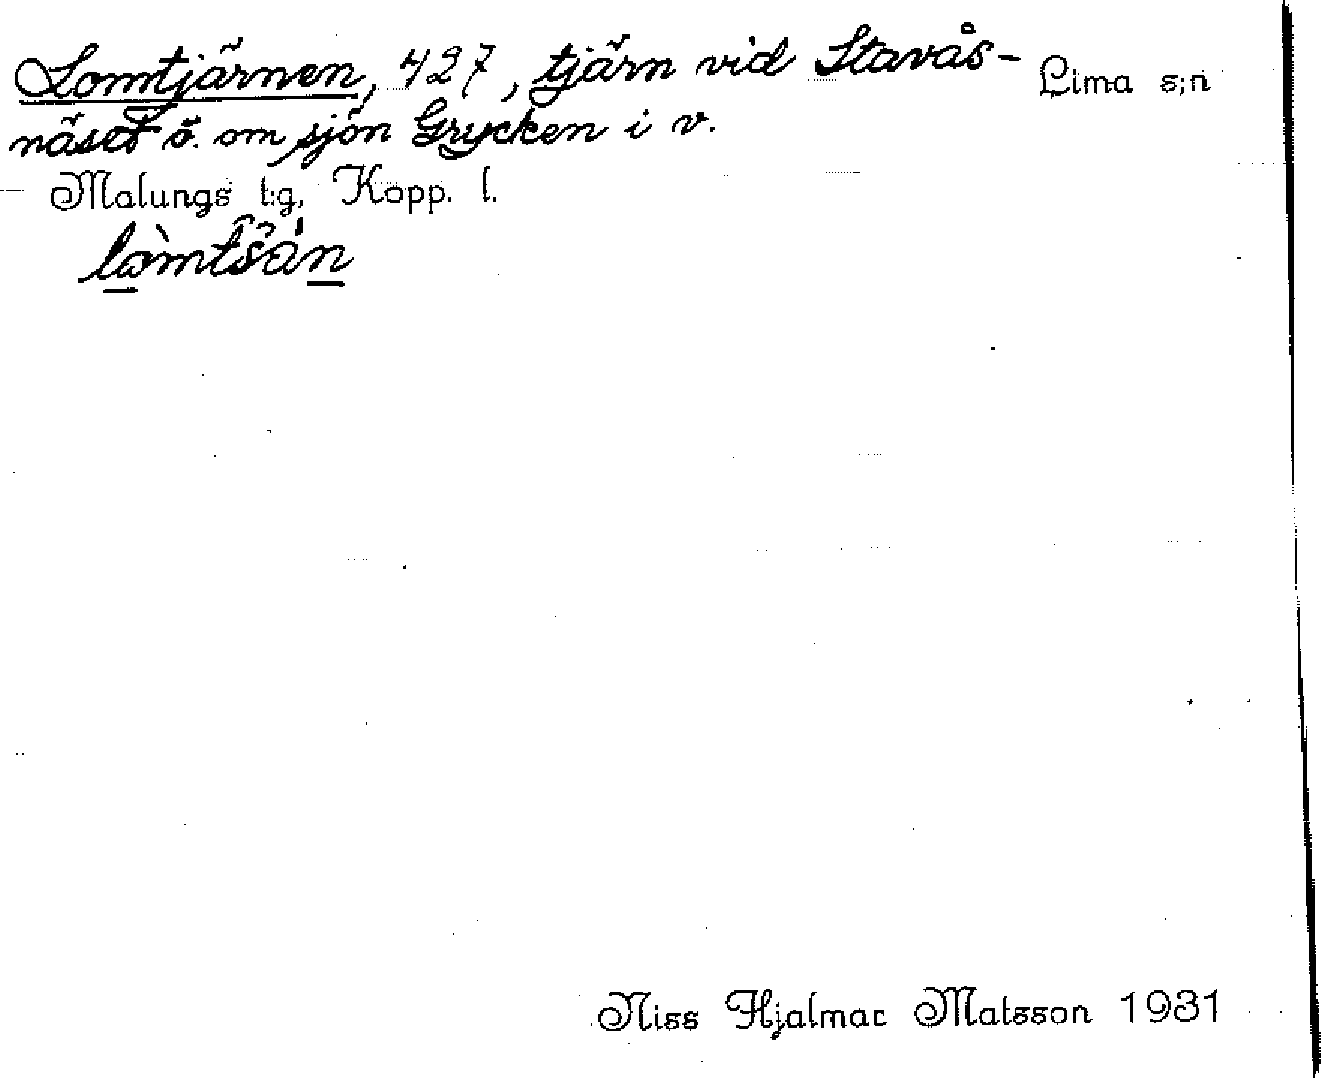 Lomtjärnen, 427, tjärn vid Stavås- Lima s:n
näset ö. om sjön Grycken i v.
Malungs t:g, Kopp. l.
Niss Hjalmar Matsson 1931